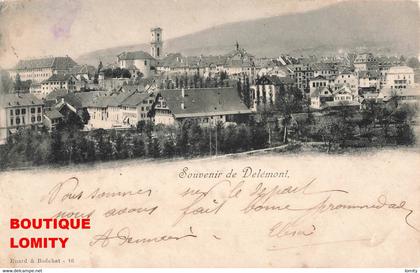 Souvenir de Delémont.
Vous sommes sur le départ
nous avons fait bonne promenade.
A demain
Elisa
BOUTIQUE
LOMITY
Enard & Boéchat - 16